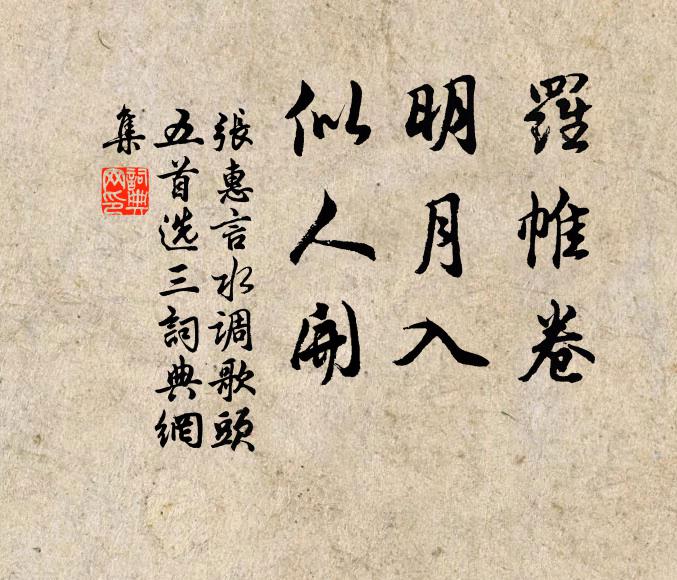 羅帷卷
明月入
似人開
張惠言水调歌頭
五首选三詞典網
集
詞典
网印